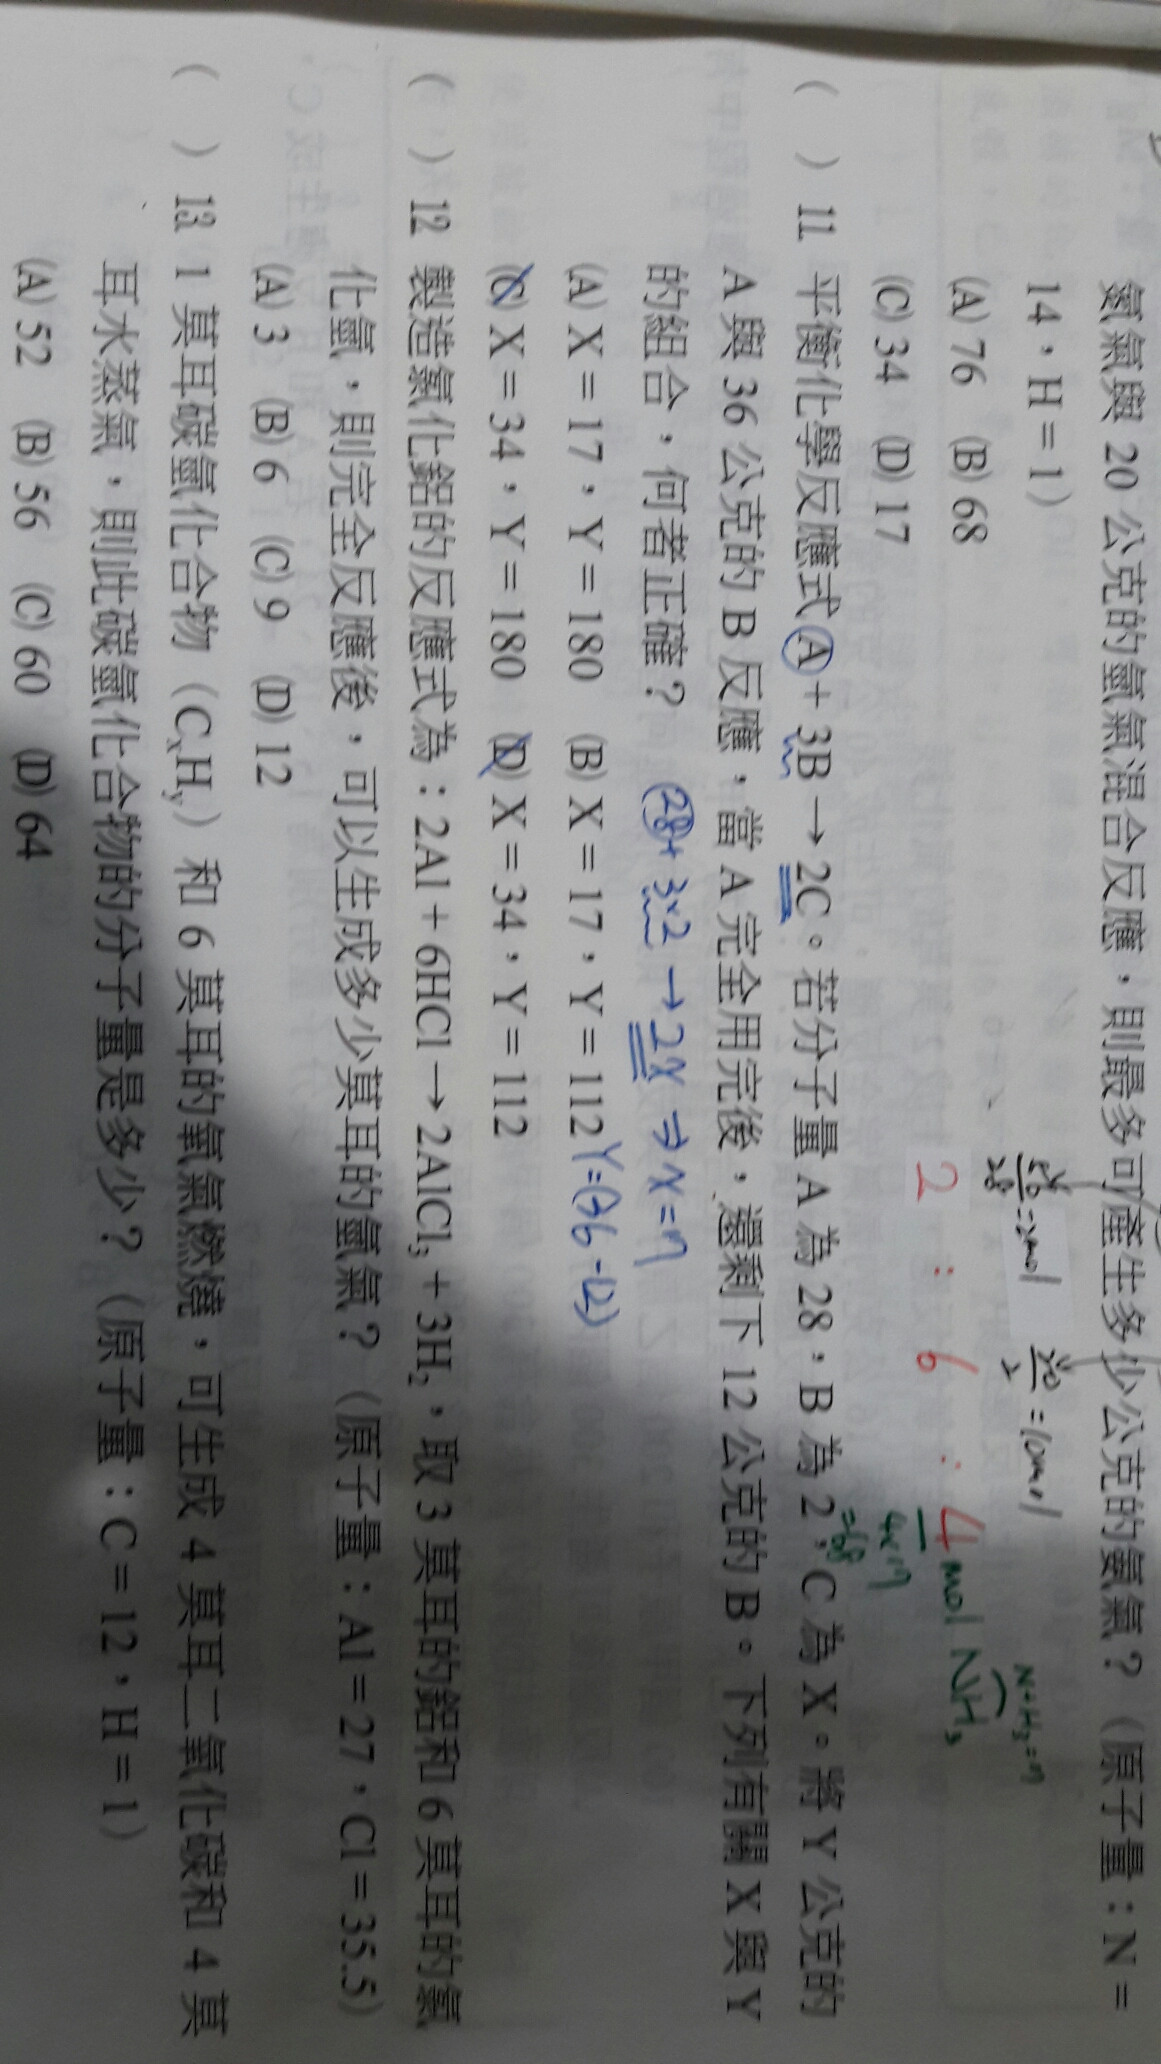 氨氣與 20 公克的氫氣混合反應，則最多可產生多少公克的氨氣？（原子量：N =
14，H = 1）
56/28 = 2mol 20/2 = 10mol N+H₃=17
(A) 76 (B) 68
2 : 6 : 4 mol NH₃
(C) 34 (D) 17
4×17
=68
( ) 11 平衡化學反應式 A + 3B → 2C。若分子量 A 為 28，B 為 2，C 為 X。將 Y 公克的
A 與 36 公克的 B 反應，當 A 完全用完後，還剩下 12 公克的 B。下列有關 X 與 Y
的組合，何者正確？ 28 + 3×2 → 2X ⇒ X = 17
(A) X = 17，Y = 180 (B) X = 17，Y = 112 Y = (36 - 12)
(C) X = 34，Y = 180 (D) X = 34，Y = 112
( ) 12 製造氯化鋁的反應式為：2Al + 6HCl → 2AlCl₃ + 3H₂，取 3 莫耳的鋁和 6 莫耳的氯
化氫，則完全反應後，可以生成多少莫耳的氫氣？（原子量：Al = 27，Cl = 35.5）
(A) 3 (B) 6 (C) 9 (D) 12
( ) 13 1 莫耳碳氫化合物（CₓHᵧ）和 6 莫耳的氧氣燃燒，可生成 4 莫耳二氧化碳和 4 莫
耳水蒸氣，則此碳氫化合物的分子量是多少？（原子量：C = 12，H = 1）
(A) 52 (B) 56 (C) 60 (D) 64